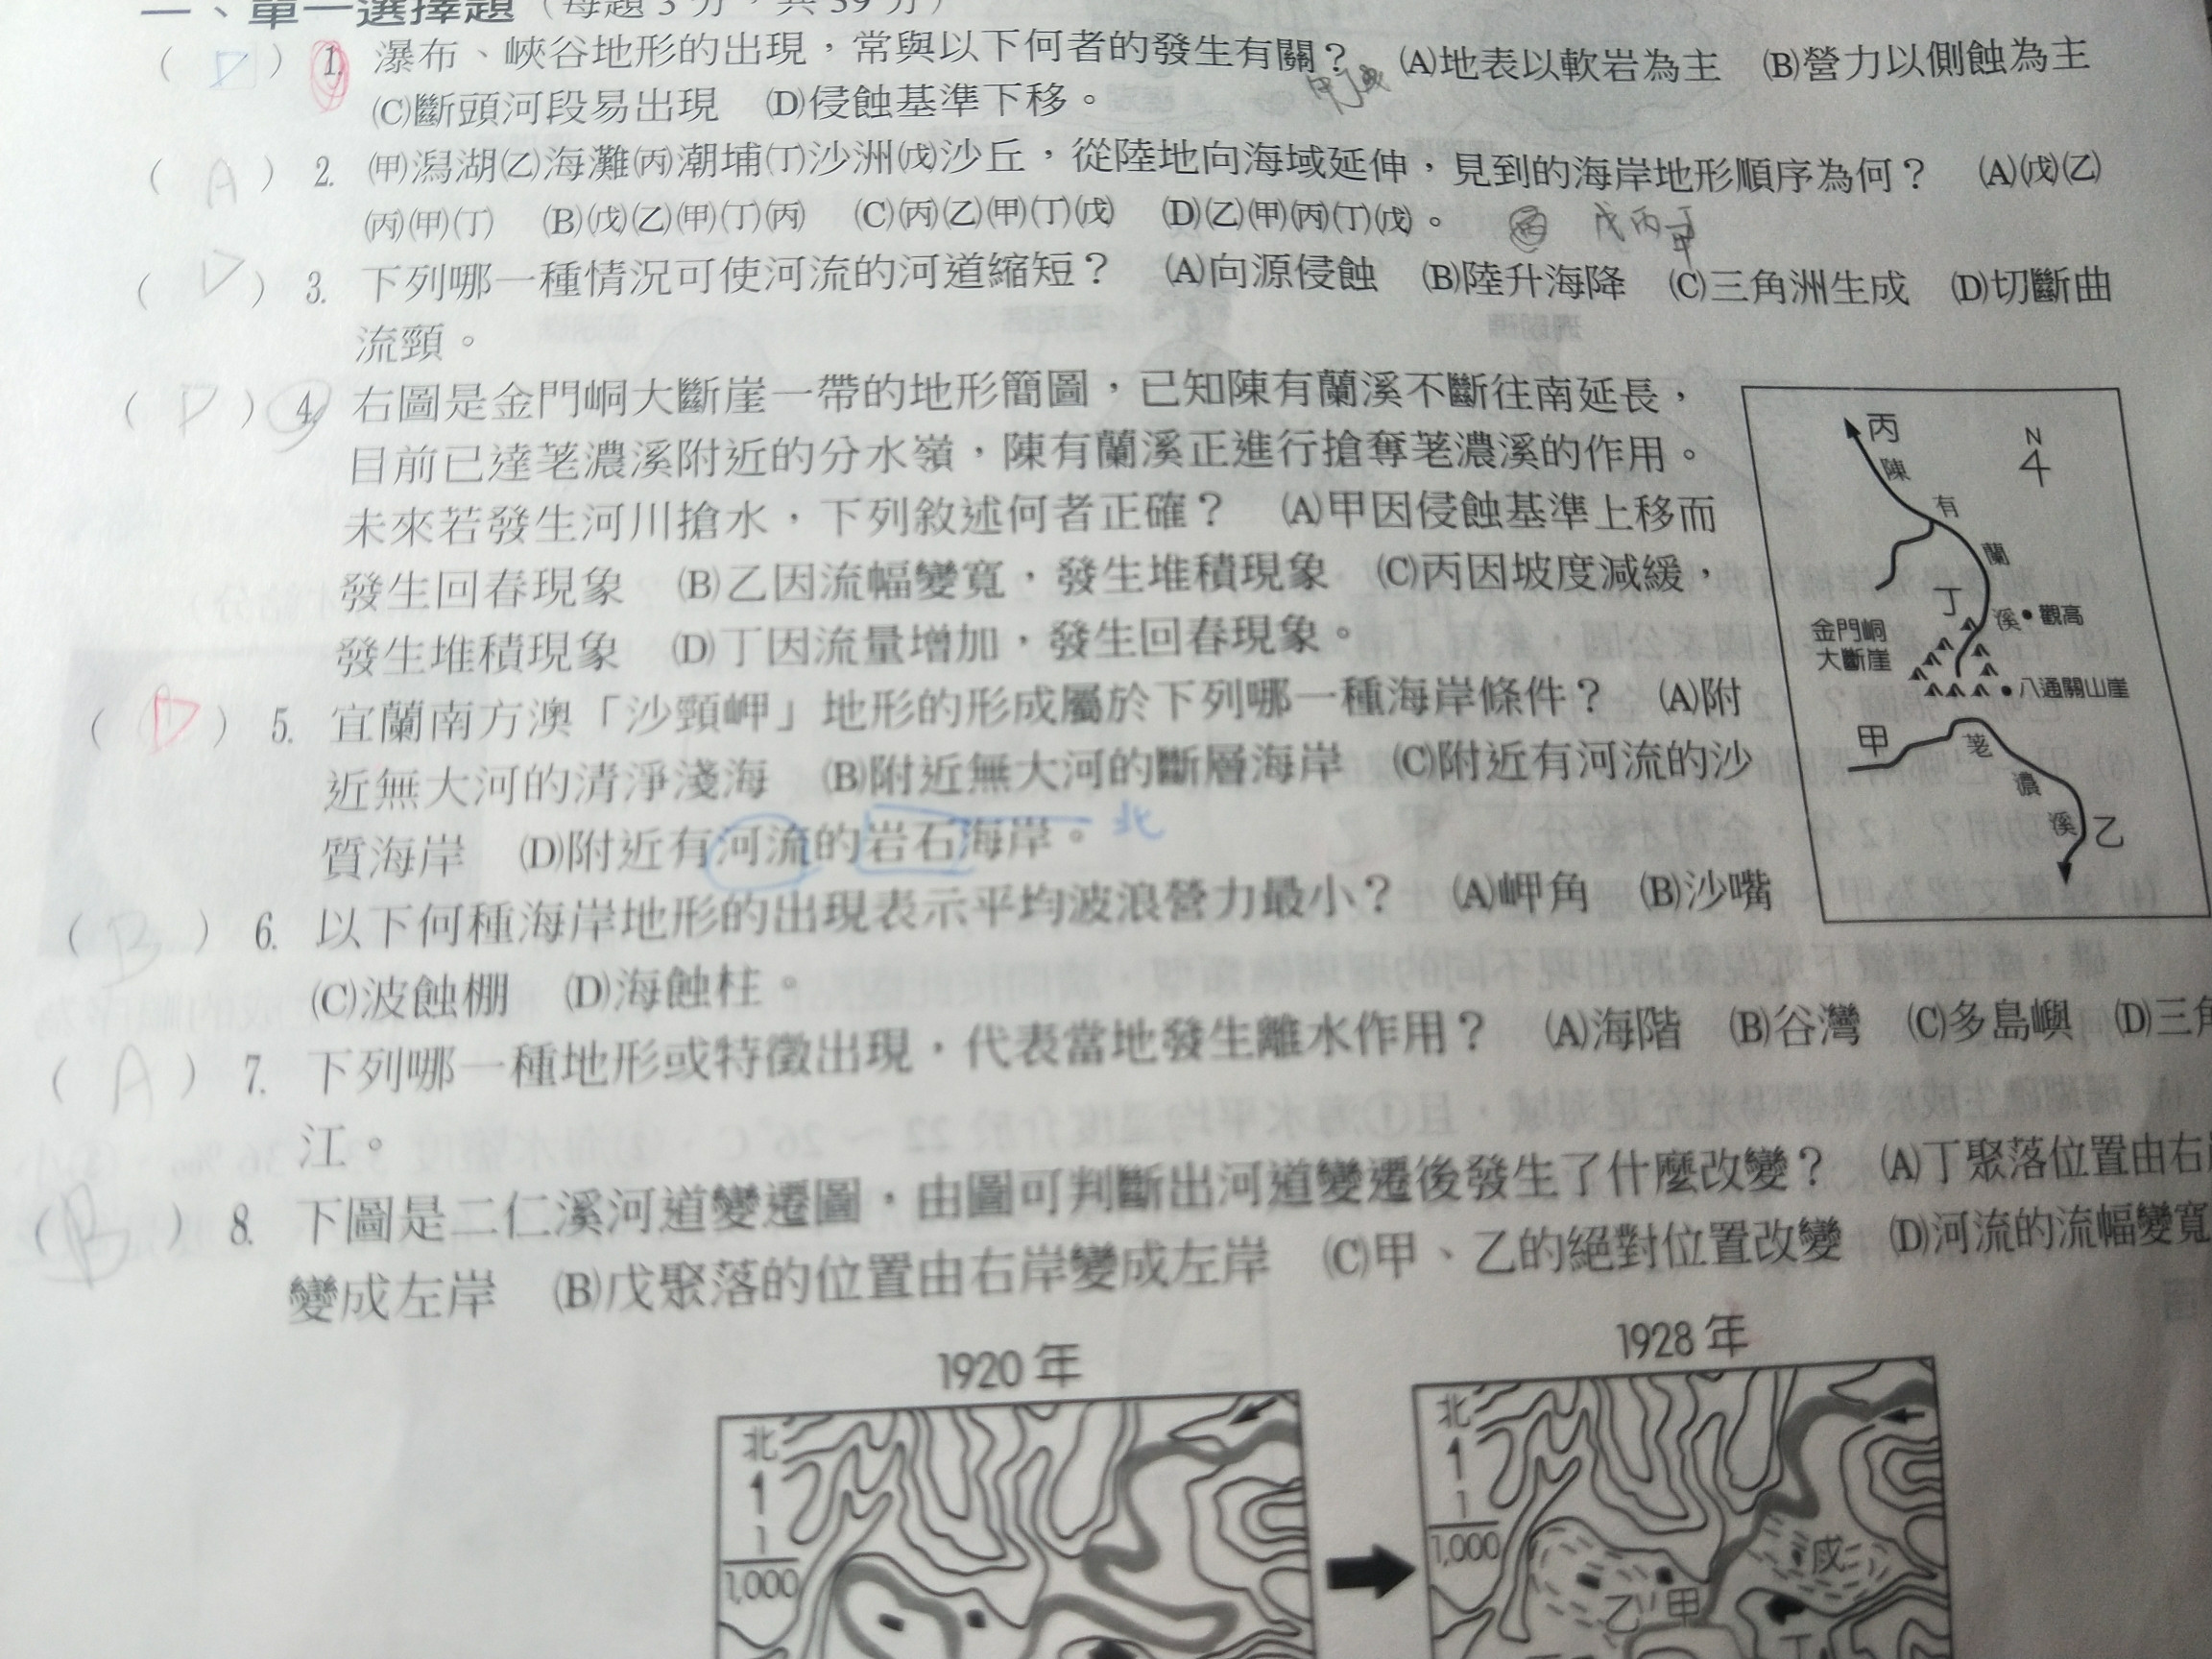 一、單一選擇題（每題3分，共39分）
( D ) 1. 瀑布、峽谷地形的出現，常與以下何者的發生有關？ (A)地表以軟岩為主 (B)營力以側蝕為主
(C)斷頭河段易出現 (D)侵蝕基準下移。
( A ) 2. (甲)潟湖(乙)海灘(丙)潮埔(丁)沙洲(戊)沙丘，從陸地向海域延伸，見到的海岸地形順序為何？ (A)(戊)(乙)
(丙)(甲)(丁) (B)(戊)(乙)(甲)(丁)(丙) (C)(丙)(乙)(甲)(丁)(戊) (D)(乙)(甲)(丙)(丁)(戊)。
丙 戊丙丁
甲
( D ) 3. 下列哪一種情況可使河流的河道縮短？ (A)向源侵蝕 (B)陸升海降 (C)三角洲生成 (D)切斷曲
流頸。
( D ) 4. 右圖是金門峒大斷崖一帶的地形簡圖，已知陳有蘭溪不斷往南延長，
目前已達荖濃溪附近的分水嶺，陳有蘭溪正進行搶奪荖濃溪的作用。
未來若發生河川搶水，下列敘述何者正確？ (A)甲因侵蝕基準上移而
發生回春現象 (B)乙因流幅變寬，發生堆積現象 (C)丙因坡度減緩，
發生堆積現象 (D)丁因流量增加，發生回春現象。
丙
N
陳
有
蘭
丁
溪
觀高
金門峒
大斷崖
八通關山崖
甲
荖
濃
溪
乙
( D ) 5. 宜蘭南方澳「沙頸岬」地形的形成屬於下列哪一種海岸條件？ (A)附
近無大河的清淨淺海 (B)附近無大河的斷層海岸 (C)附近有河流的沙
質海岸 (D)附近有河流的岩石海岸。 北
( B ) 6. 以下何種海岸地形的出現表示平均波浪營力最小？ (A)岬角 (B)沙嘴
(C)波蝕棚 (D)海蝕柱。
( A ) 7. 下列哪一種地形或特徵出現，代表當地發生離水作用？ (A)海階 (B)谷灣 (C)多島嶼 (D)三角
江。
( B ) 8. 下圖是二仁溪河道變遷圖，由圖可判斷出河道變遷後發生了什麼改變？ (A)丁聚落位置由右
變成左岸 (B)戊聚落的位置由右岸變成左岸 (C)甲、乙的絕對位置改變 (D)河流的流幅變寬
1920年
北
1
1,000
1928年
北
1
1,000
戊
乙
甲
丁